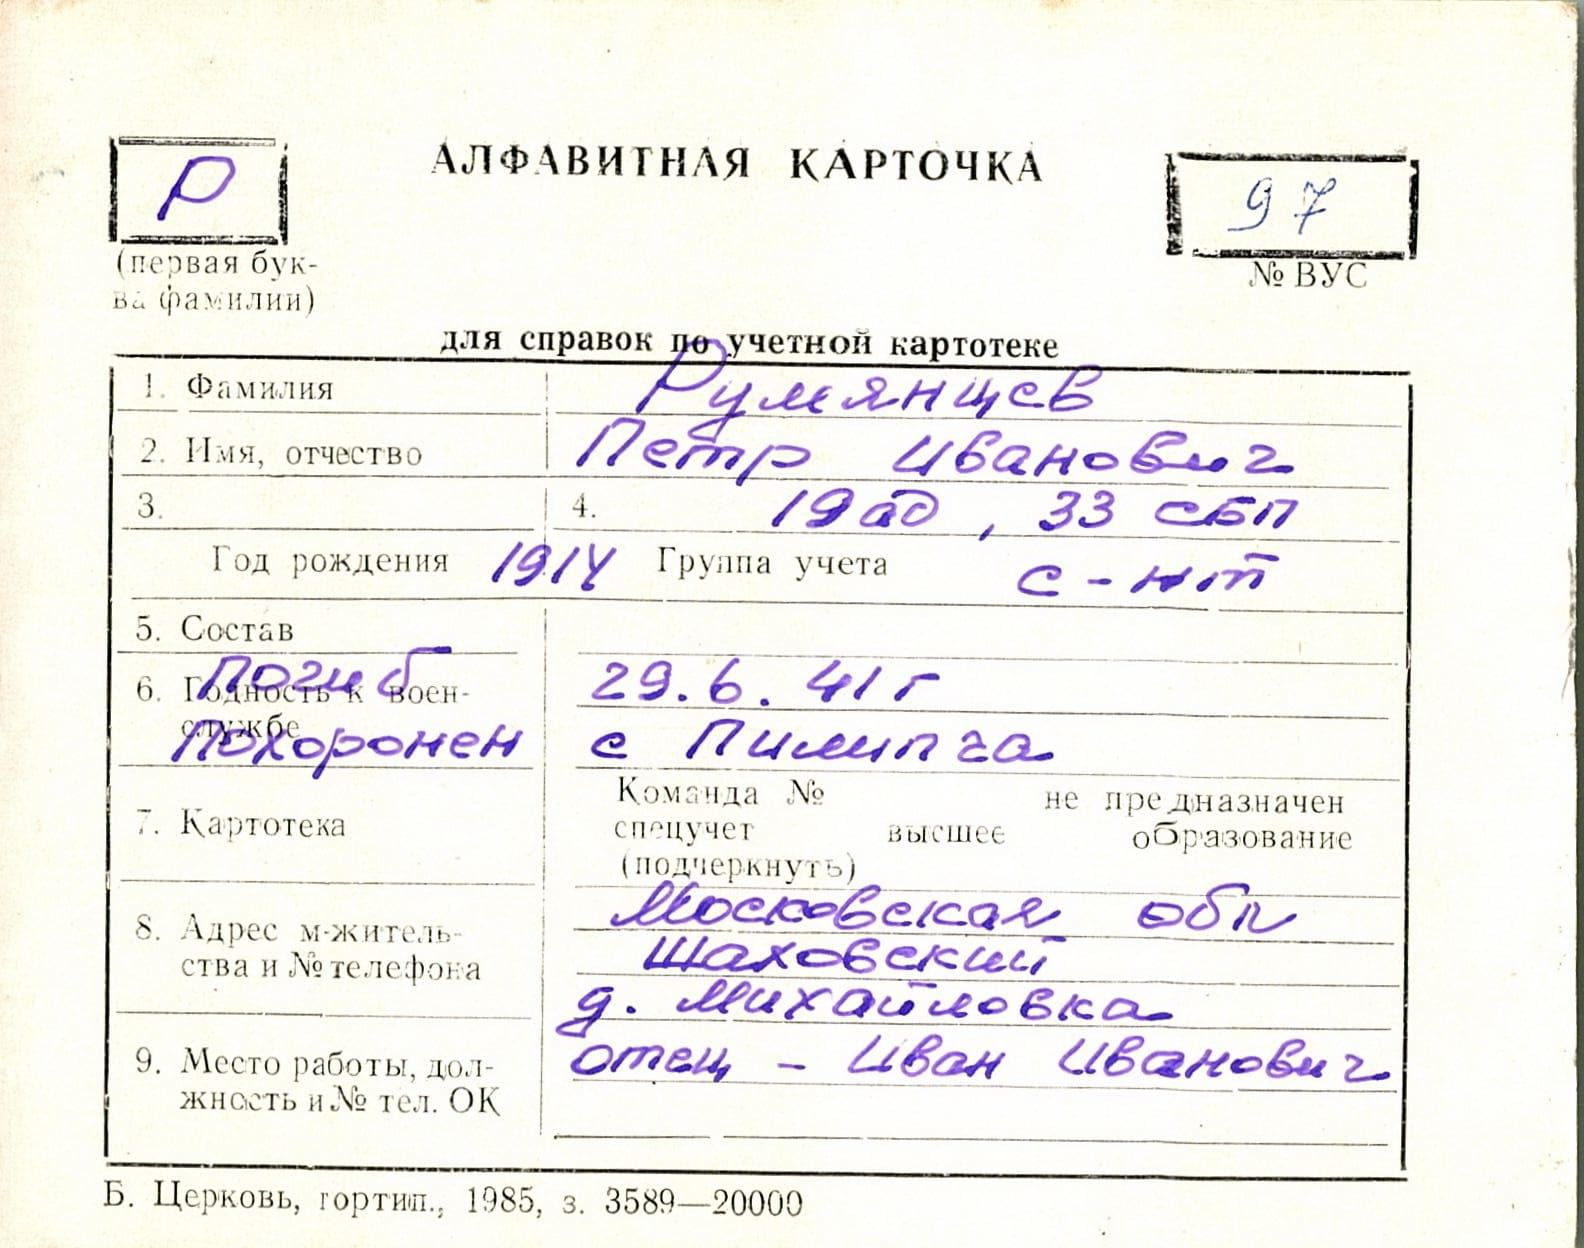 Р
АЛФАВИТНАЯ КАРТОЧКА
97
(первая бук-
ва фамилии)
№ ВУС
для справок по учетной картотеке
1. Фамилия Румянцев
2. Имя, отчество Петр Иванович
3. 4. 19 ад, 33 сбп
Год рождения 1914 Группа учета с-нт
5. Состав
6. Годность к воен-
службе
Погиб 29.6.41 г
Похоронен с Пилипча
7. Картотека
Команда № не предназначен
спецучет высшее образование
(подчеркнуть)
8. Адрес м-житель-
ства и № телефона
Московская обл
Шаховский
д. Михайловка
9. Место работы, дол-
жность и № тел. ОК
отец - Иван Иванович
Б. Церковь, гортип., 1985, з. 3589—20000